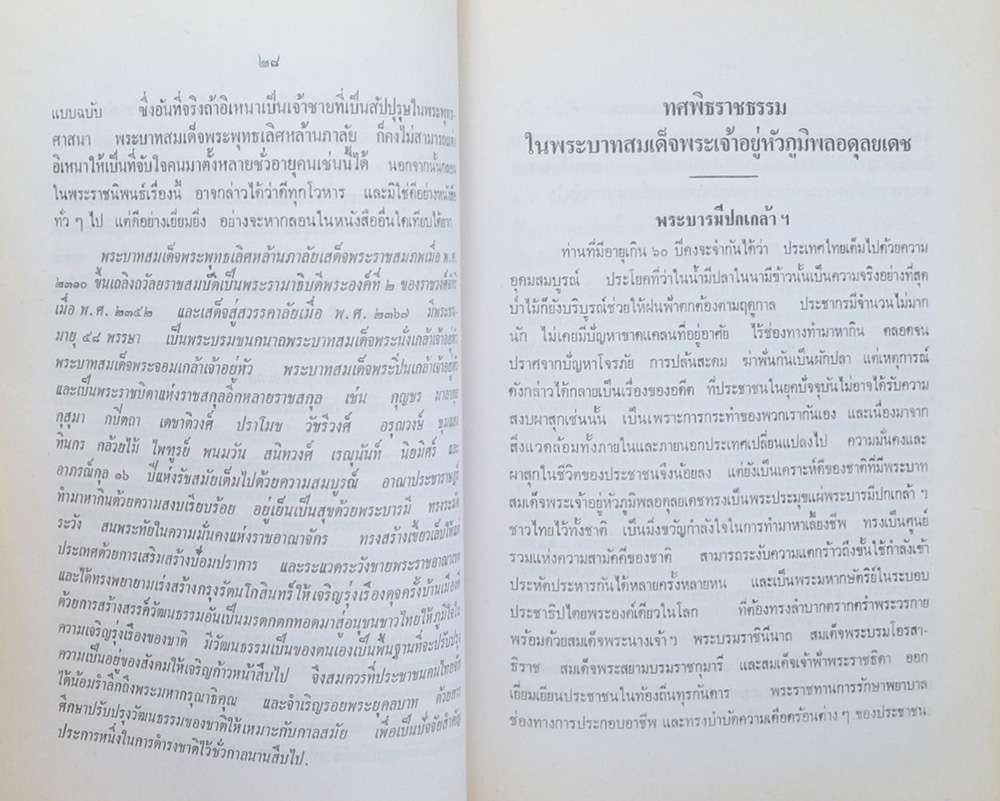 ๒๘
แบบฉบับ ซึ่งอันที่จริงถ้าอิเหนาเป็นเจ้าชายที่เป็นสัปปุรุษในพระพุทธ-
ศาสนา พระบาทสมเด็จพระพุทธเลิศหล้านภาลัย ก็คงไม่สามารถแต่ง
อิเหนาให้เป็นที่จับใจคนมาตั้งหลายชั่วอายุคนเช่นนี้ได้ นอกจากนั้นกลอน
ในพระราชนิพนธ์เรื่องนี้ อาจกล่าวได้ว่าดีทุกโวหาร และมิใช่ดีอย่างหนังสือ
ทั่ว ๆ ไป แต่ดีอย่างเยี่ยมยิ่ง อย่างจะหากลอนในหนังสืออื่นใดเทียบได้ยาก
พระบาทสมเด็จพระพุทธเลิศหล้านภาลัยเสด็จพระราชสมภพเมื่อ พ.ศ.
๒๓๑๐ ขึ้นเถลิงถวัลยราชสมบัติเป็นพระรามาธิบดีพระองค์ที่ ๒ ของราชวงศ์จักรี
เมื่อ พ.ศ. ๒๓๕๒ และเสด็จสู่สวรรคาลัยเมื่อ พ.ศ. ๒๓๖๗ มีพระชน-
มายุ ๕๘ พรรษา เป็นพระบรมชนกนาถพระบาทสมเด็จพระนั่งเกล้าเจ้าอยู่หัว
พระบาทสมเด็จพระจอมเกล้าเจ้าอยู่หัว พระบาทสมเด็จพระปิ่นเกล้าเจ้าอยู่หัว
และเป็นพระราชบิดาแห่งราชสกุลอีกหลายราชสกุล เช่น กุญชร มาลากุล
กุสุมา กปิตถา เดชาติวงศ์ ปราโมช วัชรีวงศ์ อรุณวงษ์ ชุมแสง
ทินกร กล้วยไม้ ไพฑูรย์ พนมวัน สนิทวงศ์ เรณุนันท์ นิยมิศร์ และ
อาภรณ์กุล ๑๖ ปีแห่งรัชสมัยเต็มไปด้วยความสมบูรณ์ อาณาประชาราษฎร์
ทำมาหากินด้วยความสงบเรียบร้อย อยู่เย็นเป็นสุขด้วยพระบารมี ทรงระมัด
ระวัง สนพระทัยในความมั่นคงแห่งราชอาณาจักร ทรงสร้างเขี้ยวเล็บให้แก่
ประเทศด้วยการเสริมสร้างป้อมปราการ และระแวดระวังชายพระราชอาณาเขต
และได้ทรงพยายามเร่งสร้างกรุงรัตนโกสินทร์ให้เจริญรุ่งเรืองดุจครั้งบ้านเมืองดี
ด้วยการสร้างสรรค์วัฒนธรรมอันเป็นมรดกตกทอดมาสู่อนุชนชาวไทยให้ภูมิใจใน
ความเจริญรุ่งเรืองของชาติ มีวัฒนธรรมเป็นของตนเองเป็นพื้นฐานที่จะปรับปรุง
ความเป็นอยู่ของสังคมให้เจริญก้าวหน้าสืบไป จึงสมควรที่ประชาชนคนไทยจัก
ได้น้อมรำลึกถึงพระมหากรุณาธิคุณ และจำเริญรอยพระยุคลบาท ด้วยการ
ศึกษาปรับปรุงวัฒนธรรมของชาติให้เหมาะกับกาลสมัย เพื่อเป็นปัจจัยสำคัญ
ประการหนึ่งในการดำรงชาติไว้ชั่วกาลนานสืบไป.
ทศพิธราชธรรม
ในพระบาทสมเด็จพระเจ้าอยู่หัวภูมิพลอดุลยเดช
พระบารมีปกเกล้า ฯ
ท่านที่มีอายุเกิน ๖๐ ปีคงจะจำกันได้ว่า ประเทศไทยเต็มไปด้วยความ
อุดมสมบูรณ์ ประโยคที่ว่าในน้ำมีปลาในนามีข้าวนั้นเป็นความจริงอย่างที่สุด
ป่าไม้ก็ยังบริบูรณ์ช่วยให้ฝนฟ้าตกต้องตามฤดูกาล ประชากรมีจำนวนไม่มาก
นัก ไม่เคยมีปัญหาขาดแคลนที่อยู่อาศัย ไร้ช่องทางทำมาหากิน ตลอดจน
ปราศจากปัญหาโจรภัย การปล้นสะดม ฆ่าฟันกันเป็นผักปลา แต่เหตุการณ์
ดังกล่าวได้กลายเป็นเรื่องของอดีต ที่ประชาชนในยุคปัจจุบันไม่อาจได้รับความ
สงบผาสุกเช่นนั้น เป็นเพราะการกระทำของพวกเรากันเอง และเนื่องมาจาก
สิ่งแวดล้อมทั้งภายในและภายนอกประเทศเปลี่ยนแปลงไป ความมั่นคงและ
ผาสุกในชีวิตของประชาชนจึงน้อยลง แต่ยังเป็นเคราะห์ดีของชาติที่มีพระบาท
สมเด็จพระเจ้าอยู่หัวภูมิพลอดุลยเดชทรงเป็นพระประมุขแผ่พระบารมีปกเกล้า ฯ
ชาวไทยไว้ทั้งชาติ เป็นมิ่งขวัญกำลังใจในการทำมาหาเลี้ยงชีพ ทรงเป็นศูนย์
รวมแห่งความสามัคคีของชาติ สามารถระงับความแตกร้าวถึงขั้นใช้กำลังเข้า
ประหัตประหารกันได้หลายครั้งหลายหน และเป็นพระมหากษัตริย์ในระบอบ
ประชาธิปไตยพระองค์เดียวในโลก ที่ต้องทรงลำบากตรากตรำพระวรกาย
พร้อมด้วยสมเด็จพระนางเจ้าฯ พระบรมราชินีนาถ สมเด็จพระบรมโอรสา-
ธิราช สมเด็จพระสยามบรมราชกุมารี และสมเด็จเจ้าฟ้าพระราชธิดา ออก
เยี่ยมเยียนประชาชนในท้องถิ่นทุรกันดาร พระราชทานการรักษาพยาบาล
ช่องทางการประกอบอาชีพ และทรงบำบัดความเดือดร้อนต่าง ๆ ของประชาชน